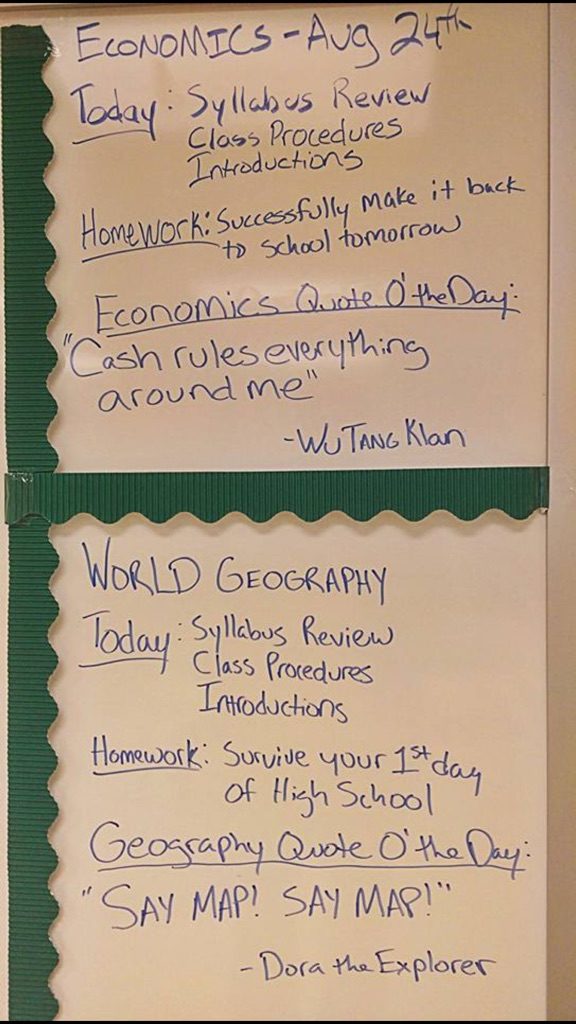 ECONOMICS - Aug 24th
Today: Syllabus Review
Class Procedures
Introductions
Homework: Successfully make it back
to school tomorrow
Economics Quote O' the Day:
"Cash rules everything
around me"
- Wu TANG Klan
WORLD GEOGRAPHY
Today: Syllabus Review
Class Procedures
Introductions
Homework: Survive your 1st day
of High School
Geography Quote O' the Day:
"SAY MAP! SAY MAP!"
- Dora the Explorer